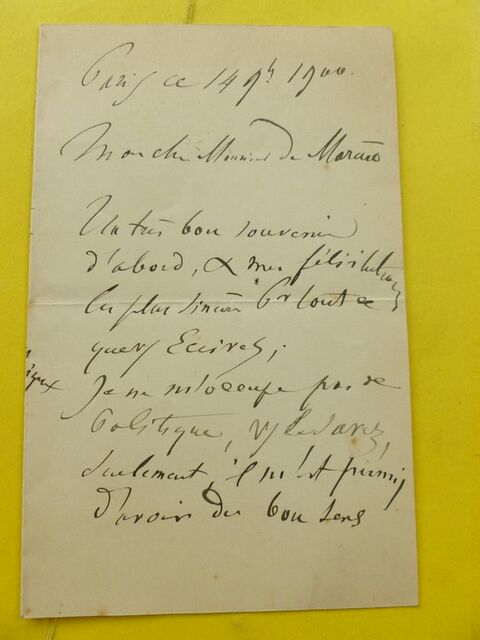 Paris ce 14 9h 1900.
Mon cher Monsieur de
Un très bon souvenir
d'abord, & mes félicitations
les plus sincères Pr tout ce
que vs Ecrivez;
Je ne m'occupe pas de
Politique, vs le savez,
seulement, il m'est permis
d'avoir du bon sens